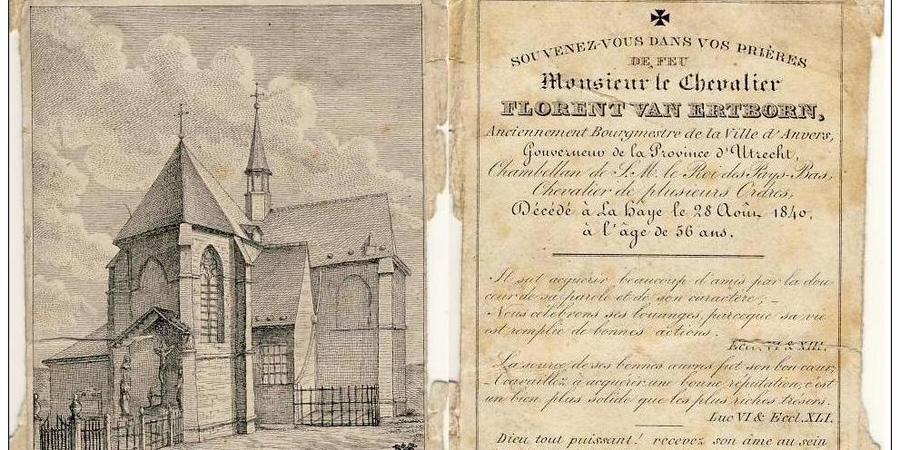 SOUVENEZ-VOUS DANS VOS PRIÈRES
DE FEU
Monsieur le Chevalier
FLORENT VAN ERTBORN,
Anciennement Bourgmestre de la Ville d'Anvers,
Gouverneur de la Province d'Utrecht,
Chambellan de S. M. le Roi des Pays-Bas,
Chevalier de plusieurs Ordres,
Décédé à La Haye le 28 Août 1840,
à l'âge de 56 ans.
Il sut acquérir beaucoup d'amis par la dou
ceur de sa parole et de son caractère; —
Nous célébrons ses louanges, parceque sa vie
est remplie de bonnes actions.
Eccl. VI & XIII.
La source de ses bonnes œuvres fut son bon cœur,
Travaillez à acquérir une bonne réputation, c'est
un bien plus solide que les plus riches trésors.
Luc VI & Eccl. XLI.
Dieu tout puissant! recevez son âme au sein